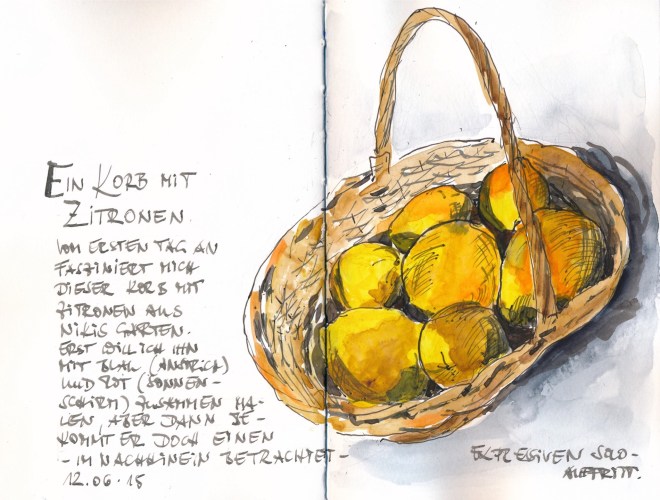 EIN KORB MIT
ZITRONEN.
VOM ERSTEN TAG AN
FASZINIERT MICH
DIESER KORB MIT
ZITRONEN AUS
NIKIS GARTEN.
ERST WILL ICH IHN
MIT BLAU (ANSTRICH)
UND ROT (SONNEN-
SCHIRM) ZUSAMMEN MA-
LEN, ABER DANN BE-
KOMMT ER DOCH EINEN
- IM NACHHINEIN BETRACHTET -
EXPRESSIVEN SOLO-
AUFTRITT.
12.06.15